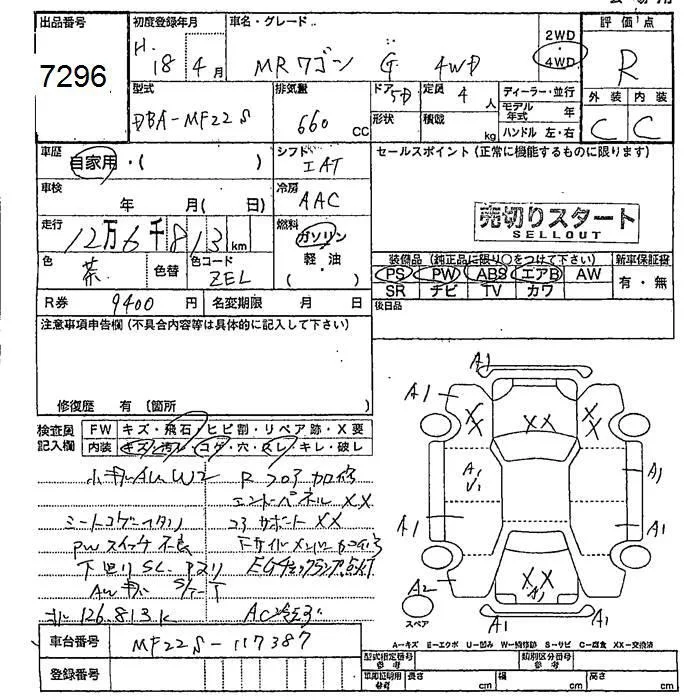 出品番号
7296
初度登録年月
H. 18年 4月
車名・グレード
MRワゴン G 4WD
2WD
4WD
評価点
R
外装 内装
C C
型式
DBA-MF22S
排気量
660 CC
ドア 5D
形状
定員 4人
積載 kg
ディーラー・並行
モデル年式 年
ハンドル 左・右
車歴
自家用・( )
シフト
IAT
セールスポイント(正常に機能するものに限ります)
売切りスタート
SELLOUT
車検
年 月( 日)
冷房
AAC
走行
12万6千813km
燃料
ガソリン
軽・油
( )
色
茶
色替
色コード
ZEL
装備品(純正品に限り○をつけて下さい)
新車保証書
PS PW ABS エアB AW
有・無
SR ナビ TV カワ
R券 9400円
名変期限 月 日
後日品
注意事項申告欄(不具合内容等は具体的に記入して下さい)
修復歴 有(箇所 )
検査員記入欄
FW キズ・飛石・ヒビ割・リペア跡・X要
内装 キズ・汚レ・コゲ・穴・スレ・キレ・破レ
W2
XX
コアサポート XX
PWスイッチ不良
EGチェックランプ点灯
126.813K
A1
A1 A1
XX XX XX
A1
A1
A1 A1
A2
XX
A1
A1 A1
スペア
A-キズ E-エクボ U-凹み W-補修跡 S-サビ C-腐食 XX-交換済
車台番号 MF22S-117387
登録番号
型式指定番号 参考
類別区分番号 参考
車両重量 参考
長さ cm
幅 cm
高さ cm